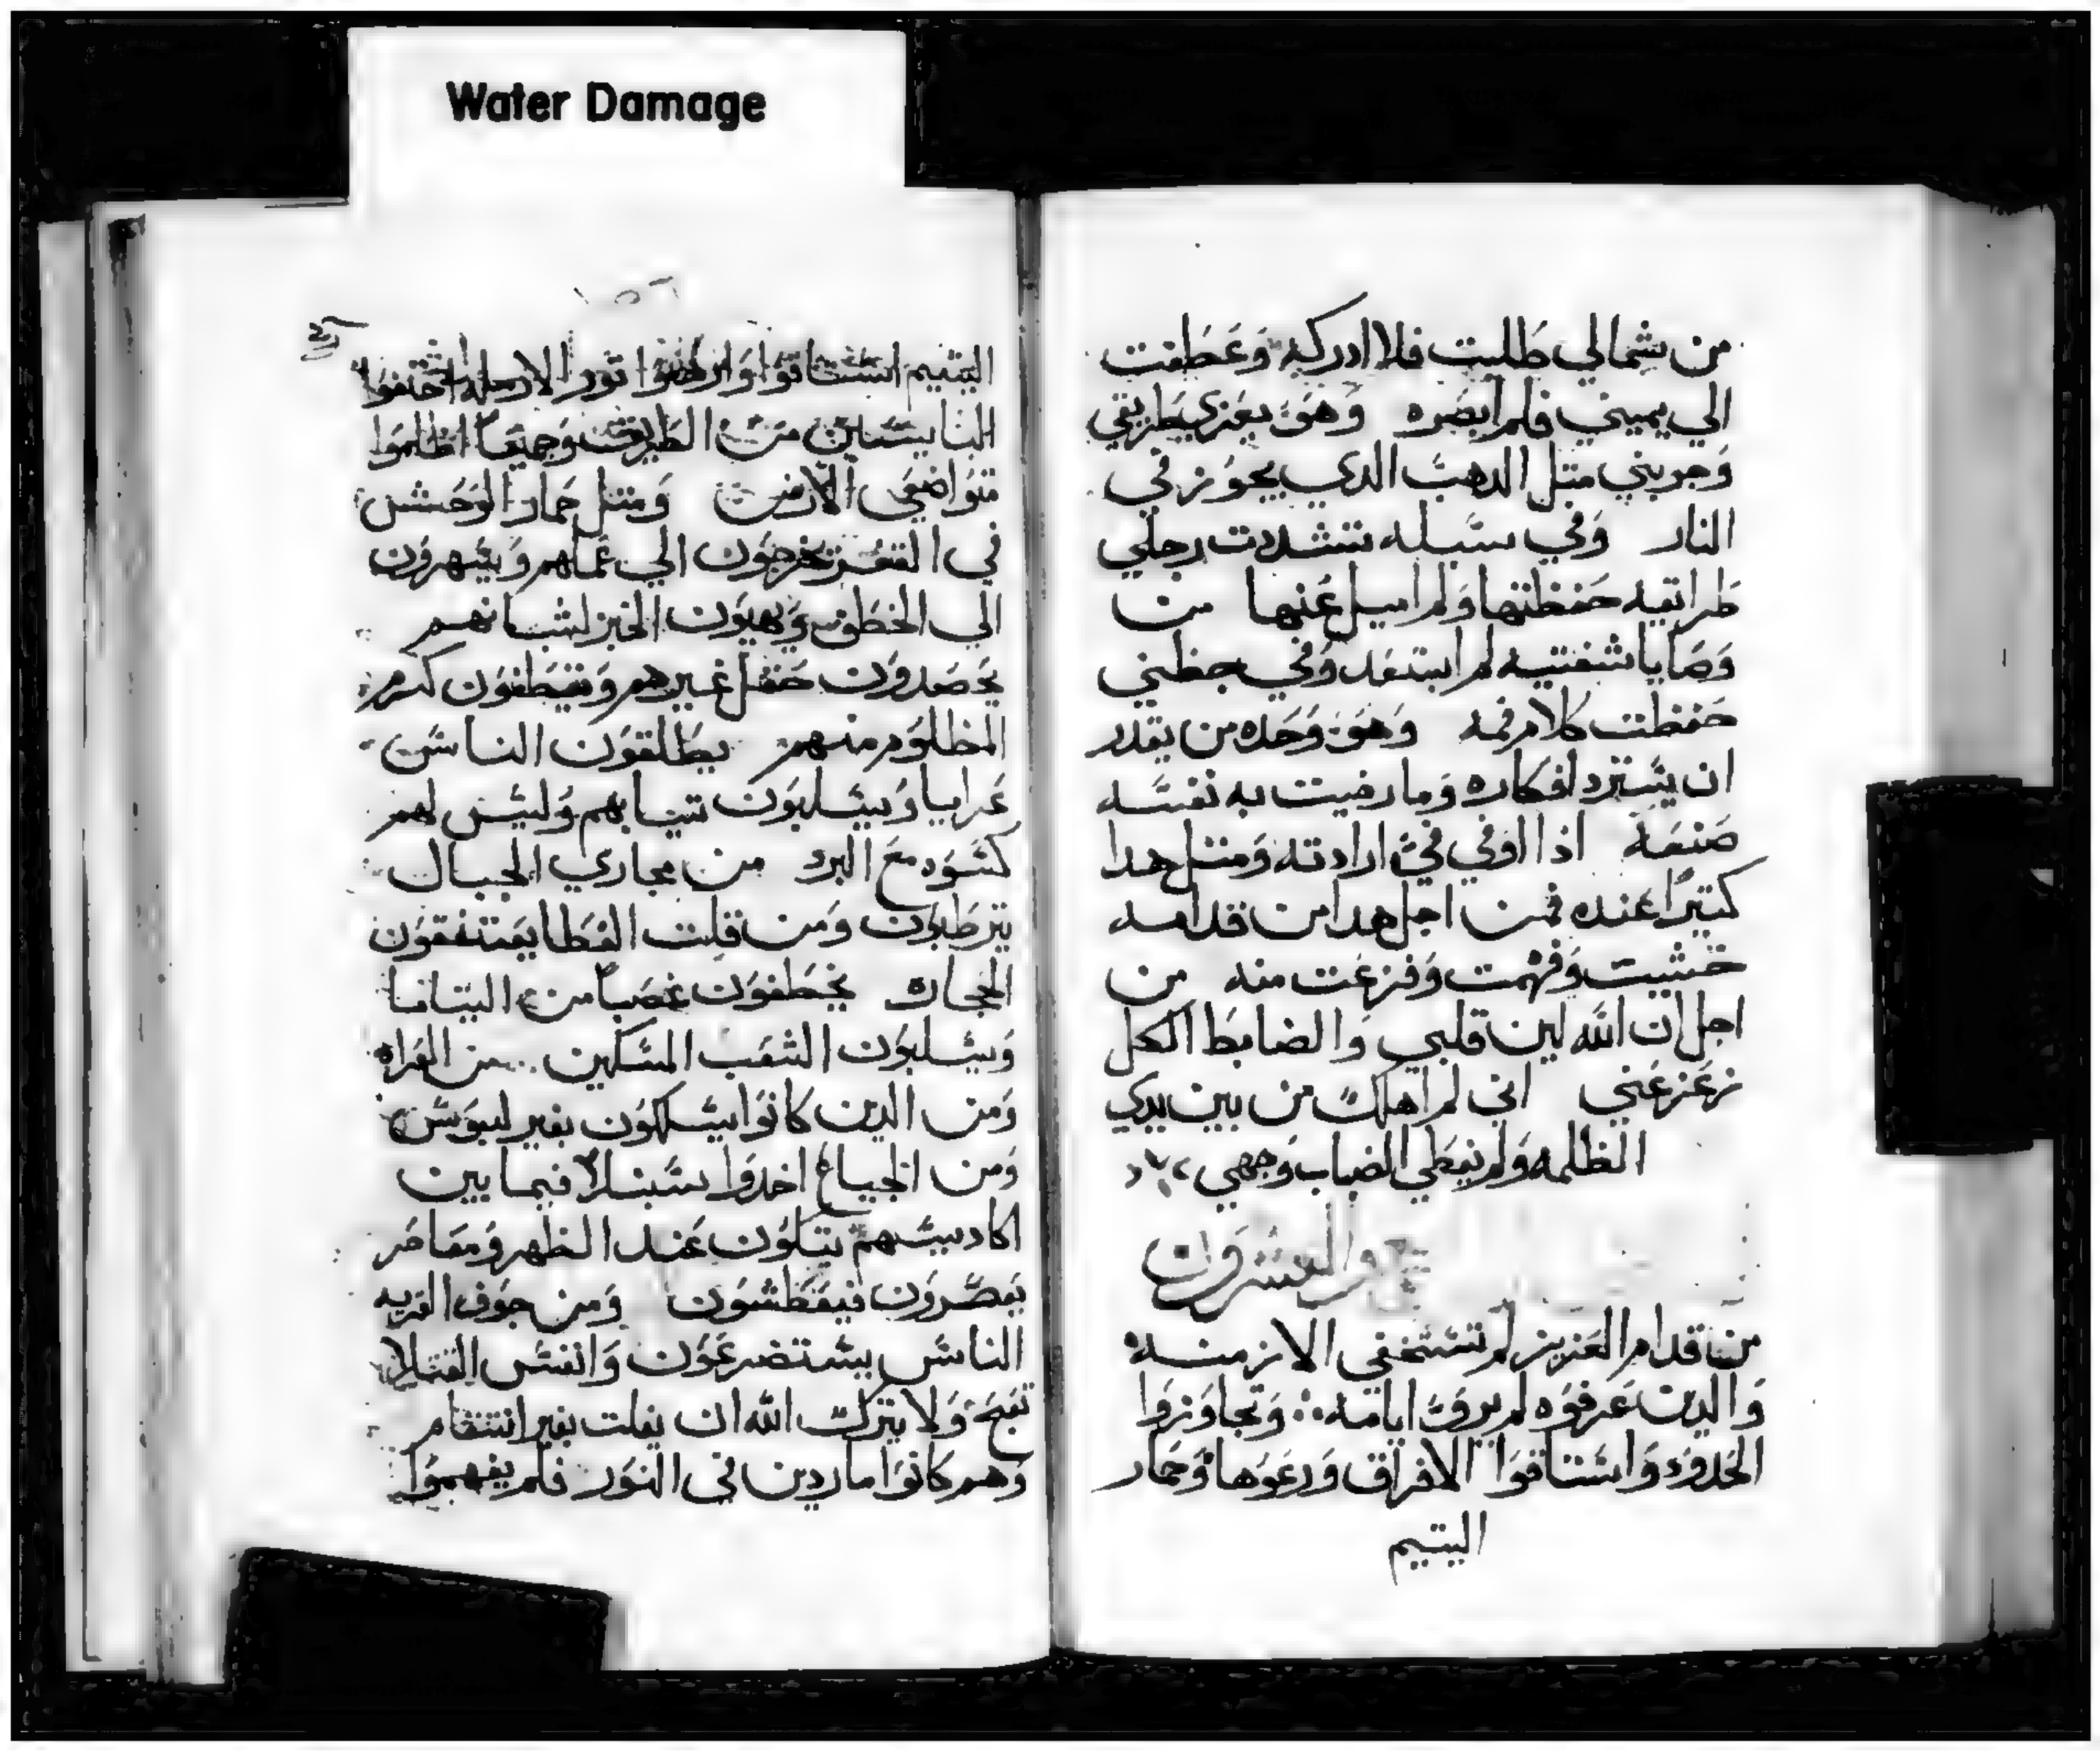 Water Damage
من شمالي طلبت فلا ادركه وعطفت
الي يميني فلم ابصره وهو يعزي بطريقي
وجربني متل الدهب الدي يجوز في
النار وفي سبله تشددت رجلي
طراتقيه حفظتها ولم اميل عنها من
وصايا شفتيه لم ابتعد وفي حظني
حفظت كلام فمه وهو وحده من يقدر
ان يسترد افكاره وما رضيت به نفسه
صنعه اذا اوفي في ارادته ومتل هدا
كتيرا عنده فمن اجل هدا من قدامه
خشيت وفهمت وفزعت منه من
اجل ان الله لين قلبي والضابط الكل
زعزعني اني لم اهلك من بين يدي
الظلمه ولم يغطي الضباب وجهي
والعشرون
من قدام العزيز لم تستخفي الازمنه
والدين عرفوه لم يرون ايامه وتجاوزوا
الحدود واستاقوا الافراق ورعوها وحمار
اليتيم
اليتيم استاقوا وارهنوا تور الارمله اختفوا
البايسين من الطريق وجميعا اظلموا
متواضعي الارض ومتل حمار الوحش
في القفر يخرجون الي عملهم ويسهرون
الي الخطف ويهيون الخبز لشبانهم
يحصدون حقل غيرهم ويقطفون كرم
المظلوم منهم يطلقون الناس
عرايا ويسلبون تيابهم وليس لهم
كسوه مع البرد من مجاري الجبال
يترطبون ومن قلت الغطا يعتنقون
الحجاره يخطفون غصبا من اليتاما
ويسلبون الشعب المسكين من العراه
ومن الدين كانوا يسلكون بغير لبوس
ومن الجياع اخدوا سبلا فيما بين
اكاديسهم يتلون عند الظهر ومعاصر
يعصرون فيعطشون ومن جوف القريه
الناس يستضرعون وانفس القتلا
تعج ولا يترك الله ان يفلت بغير انتقام
وهم كانوا ماردين في النور فلم يفهموا